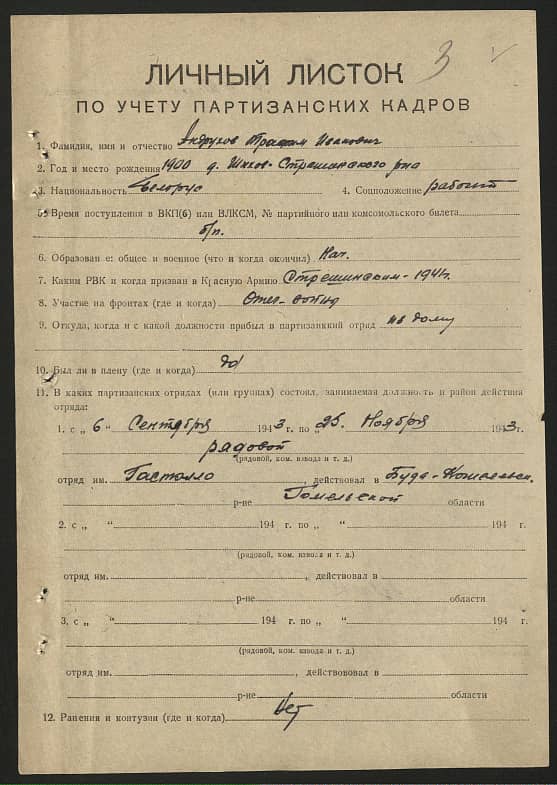 3
ЛИЧНЫЙ ЛИСТОК
ПО УЧЕТУ ПАРТИЗАНСКИХ КАДРОВ
1. Фамилия, имя и отчество Андрухов Трафим Иванович
2. Год и место рождения 1900 д. Шихов- Стрешинского р-на
3. Национальность Белорус 4. Соцположение рабочий
5. Время поступления в ВКП(б) или ВЛКСМ, № партийного или комсомольского билета
б/п.
6. Образование: общее и военное (что и когда окончил) Нач.
7. Каким РВК и когда призван в Красную Армию Стрешинским- 1941г.
8. Участие на фронтах (где и когда) Отеч-
9. Откуда, когда и с какой должности прибыл в партизанский отряд из дому
10. Был ли в плену (где и когда) да
11. В каких партизанских отрядах (или группах) состоял, занимаемая должность и район действия
отряда:
1. с „ 6 " Сентября 1943 г. по „ 25. Ноября 1943 г.
рядовой
(рядовой, ком. взвода и т. д.)
отряд им. Гастелло , действовал в Буда-Кошелевск.
р-не Гомельской области
2. с „ " 194 г. по „ " 194 г.
(рядовой, ком. взвода и т. д.)
отряд им. , действовал в
р-не области
3. с „ " 194 г. по „ " 194 г.
(рядовой, ком. взвода и т. д.)
отряд им. , действововал в
р-не области
12. Ранения и контузии (где и когда) Нет